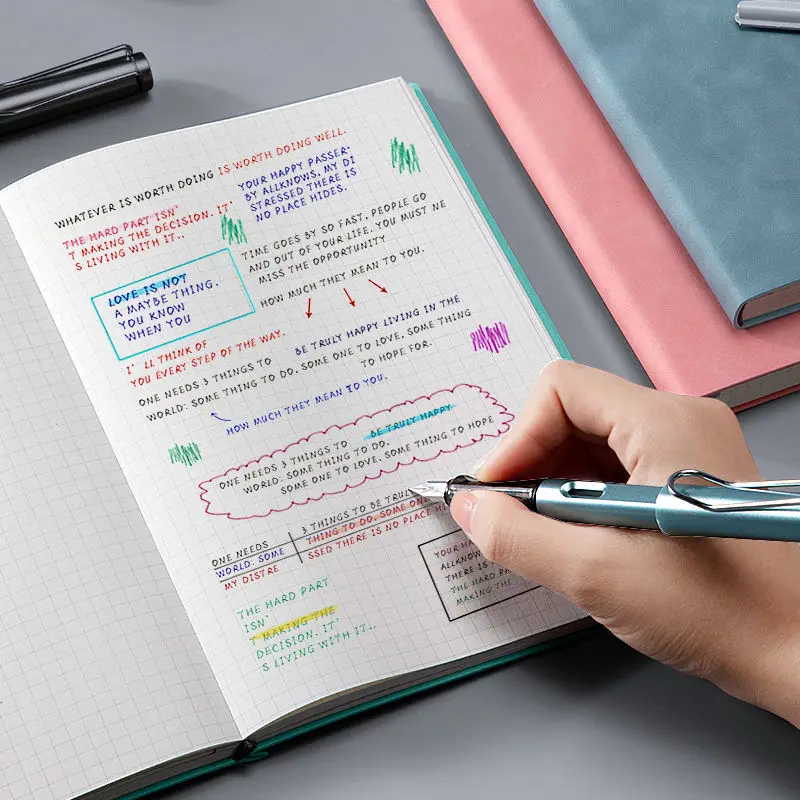 WHATEVER IS WORTH DOING IS WORTH DOING WELL.
THE HARD PART ISN'
T MAKING THE DECISION. IT'
S LIVING WITH IT..
YOUR HAPPY PASSER-
BY ALLKNOWS, MY DI
STRESSED THERE IS
NO PLACE HIDES.
TIME GOES BY SO FAST, PEOPLE GO
AND OUT OF YOUR LIFE. YOU MUST NE
MISS THE OPPORTUNITY
HOW MUCH THEY MEAN TO YOU.
LOVE IS NOT
A MAYBE THING.
YOU KNOW
WHEN YOU
I' LL THINK OF
YOU EVERY STEP OF THE WAY.
ONE NEEDS 3 THINGS TO BE TRULY HAPPY LIVING IN THE
WORLD: SOME THING TO DO. SOME ONE TO LOVE. SOME THING
TO HOPE FOR.
HOW MUCH THEY MEAN TO YOU.
ONE NEEDS 3 THINGS TO BE TRULY HAPPY
WORLD: SOME THING TO DO.
SOME ONE TO LOVE. SOME THING TO HOPE
ONE NEEDS 3 THINGS TO BE TRULY
WORLD. SOME THING TO DO. SOME ONE
MY DISTRE SSED THERE IS NO PLACE HI
YOUR HA
ALLKNOW
THERE IS
THE HARD PA
MAKING THE
THE HARD PART
ISN'
T MAKING THE
DECISION. IT'
S LIVING WITH IT..